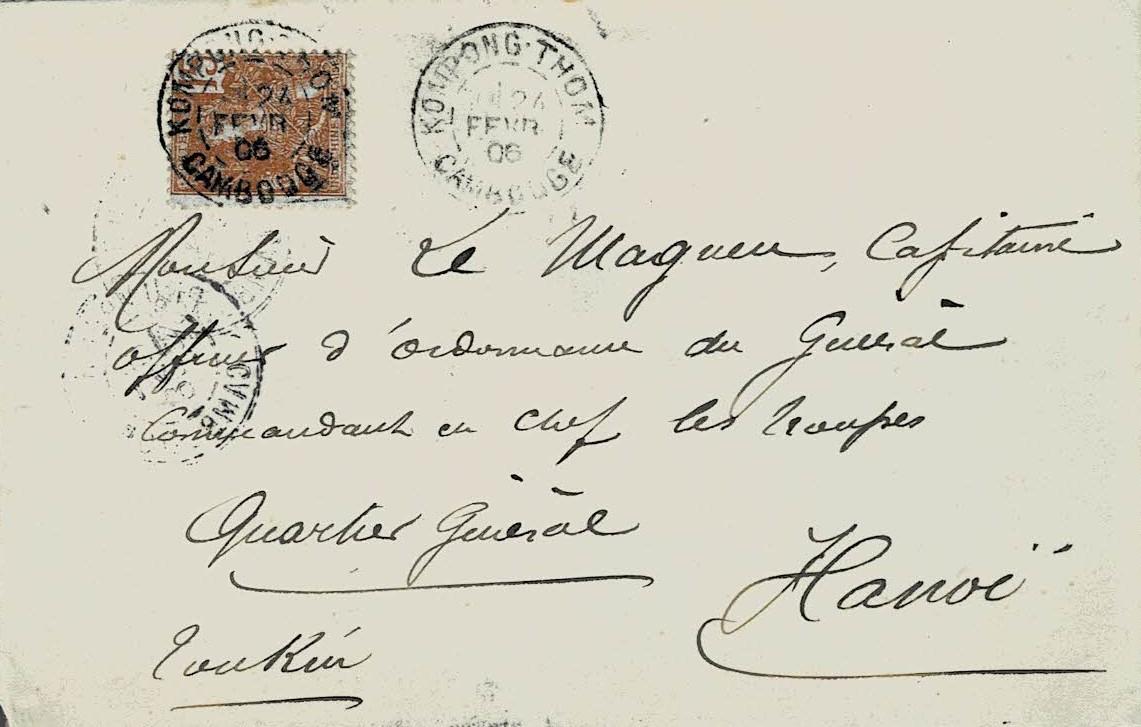 KOMPONG-THOM
24
FEVR
06
CAMBODGE
KOMPONG-THOM
24
FEVR
06
CAMBODGE
Monsieur Le Maguen, Capitaine
officier d'ordonnance du Général
Commandant en chef les troupes
Quartier Général
Hanoï
Tonkin
CAMB